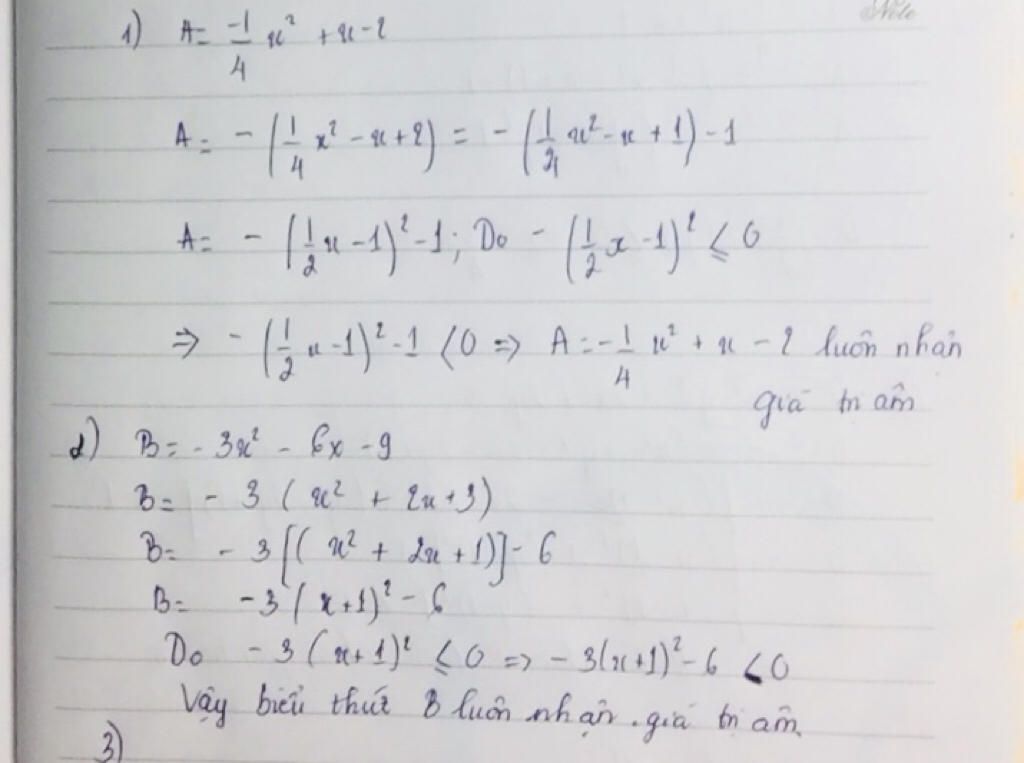 Note
1) A = -1/4 x² + x - 2
A = - (1/4 x² - x + 2) = - (1/4 x² - x + 1) - 1
A = - (1/2 x - 1)² - 1; Do - (1/2 x - 1)² ≤ 0
⇒ - (1/2 x - 1)² - 1 < 0 ⇒ A = -1/4 x² + x - 2 luôn nhận
giá trị âm
2) B = - 3x² - 6x - 9
B = - 3 (x² + 2x + 3)
B = - 3 [(x² + 2x + 1)] - 6
B = -3 (x + 1)² - 6
Do - 3 (x + 1)² ≤ 0 ⇒ - 3(x + 1)² - 6 < 0
Vậy biểu thức B luôn nhận giá trị âm.
3)